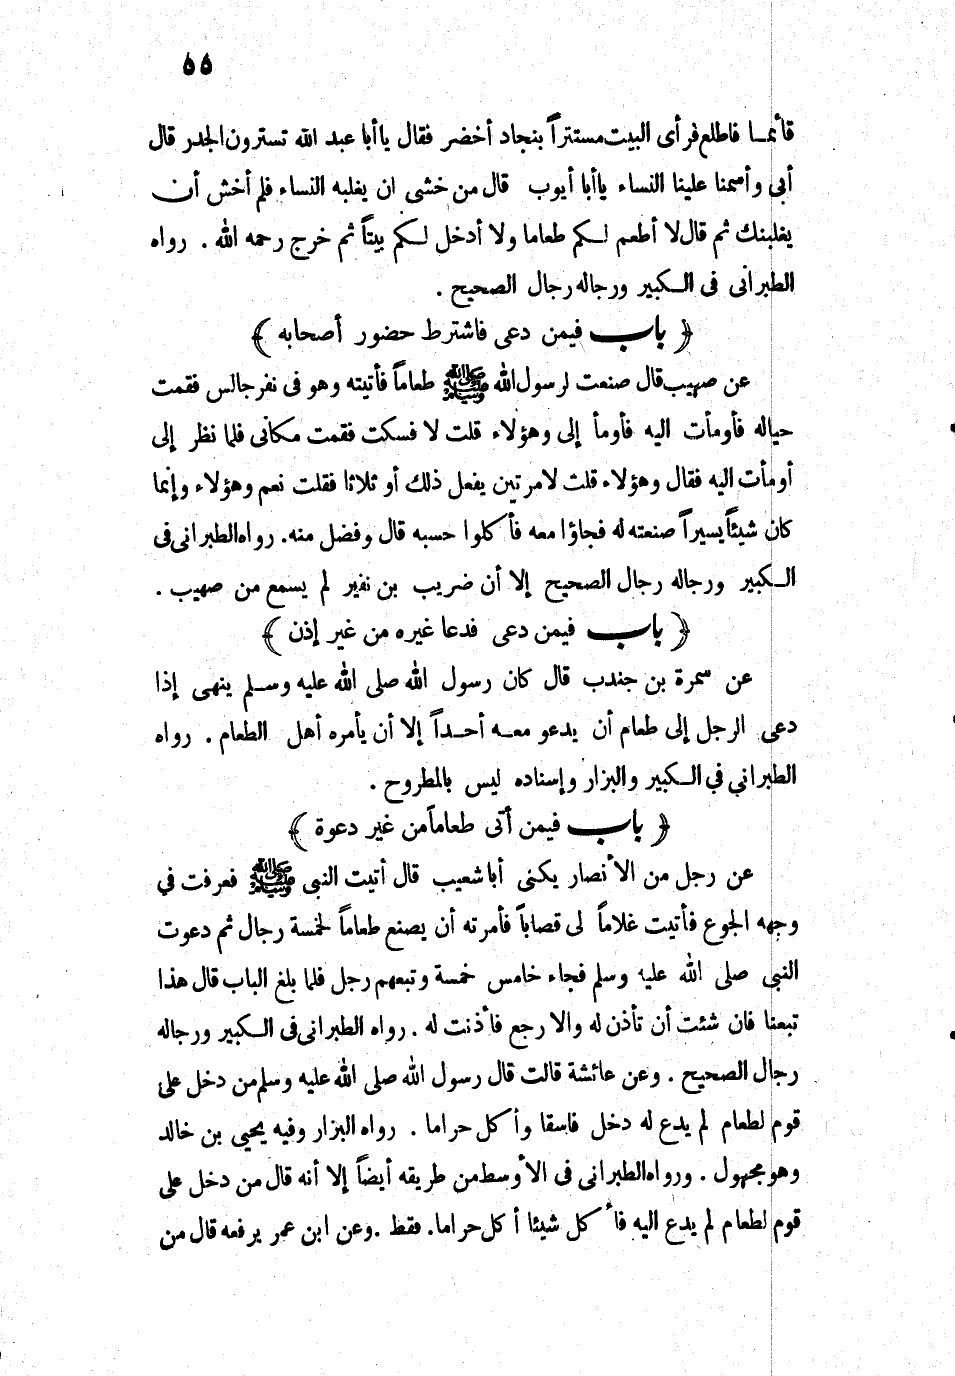 ٥٥
قائما فاطلع فرأى البيت مستتراً بنجاد أخضر فقال ياأبا عبد الله تسترون الجدر قال
أبى وأصمنا علينا النساء ياأبا أيوب قال من خشى ان يغلبه النساء فلم أخش أن
يغلبنك ثم قال لا أطعم لكم طعاما ولا أدخل لكم بيتاً ثم خرج رحمه الله . رواه
الطبرانى فى الكبير ورجاله رجال الصحيح .
﴿ باب فيمن دعى فاشترط حضور أصحابه ﴾
عن صهيب قال صنعت لرسول الله ﷺ طعاماً فأتيته وهو فى نفر جالس فقمت
حياله فأومأت اليه فأومأ إلى وهؤلاء قلت لا فسكت فقمت مكانى فلما نظر إلى
أومأت اليه فقال وهؤلاء قلت لا مرتين يفعل ذلك أو ثلاثا فقلت نعم وهؤلاء وإنما
كان شيئاً يسيراً صنعته له فجاؤا معه فأكلوا حسبه قال وفضل منه. رواه الطبرانى فى
الكبير ورجاله رجال الصحيح إلا أن ضريب بن نفير لم يسمع من صهيب .
﴿ باب فيمن دعى فدعا غيره من غير إذن ﴾
عن سمرة بن جندب قال كان رسول الله صلى الله عليه وسلم ينهى إذا
دعي الرجل إلى طعام أن يدعو معه أحداً إلا أن يأمره أهل الطعام . رواه
الطبرانى في الكبير والبزار وإسناده ليس بالمطروح .
﴿ باب فيمن أتى طعاماً من غير دعوة ﴾
عن رجل من الأنصار يكنى أبا شعيب قال أتيت النبى ﷺ فعرفت في
وجهه الجوع فأتيت غلاماً لى قصاباً فأمرته أن يصنع طعاماً لخمسة رجال ثم دعوت
النبى صلى الله عليه وسلم فجاء خامس خمسة وتبعهم رجل فلما بلغ الباب قال هذا
تبعنا فان شئت أن تأذن له والا رجع فأذنت له . رواه الطبرانى فى الكبير ورجاله
رجال الصحيح . وعن عائشة قالت قال رسول الله صلى الله عليه وسلم من دخل على
قوم لطعام لم يدع له دخل فاسقا وأكل حراما . رواه البزار وفيه يحيى بن خالد
وهو مجهول . ورواه الطبرانى فى الأوسط من طريقه أيضاً إلا أنه قال من دخل على
قوم لطعام لم يدع اليه فأكل شيئا أكل حراما. فقط .وعن ابن عمر يرفعه قال من